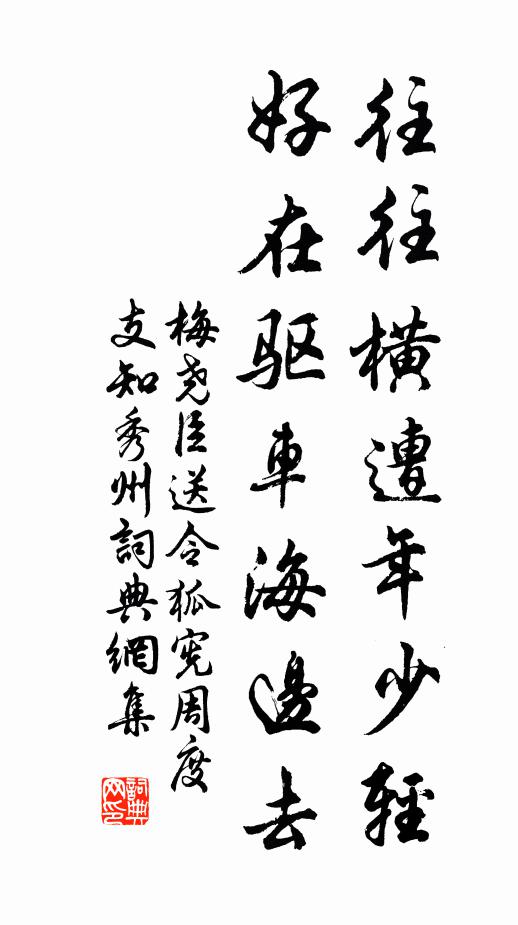 往往横遭年少輕
好在驱車海邊去
梅尧臣送令狐宪周度
支知秀州詞典網集
詞典网印